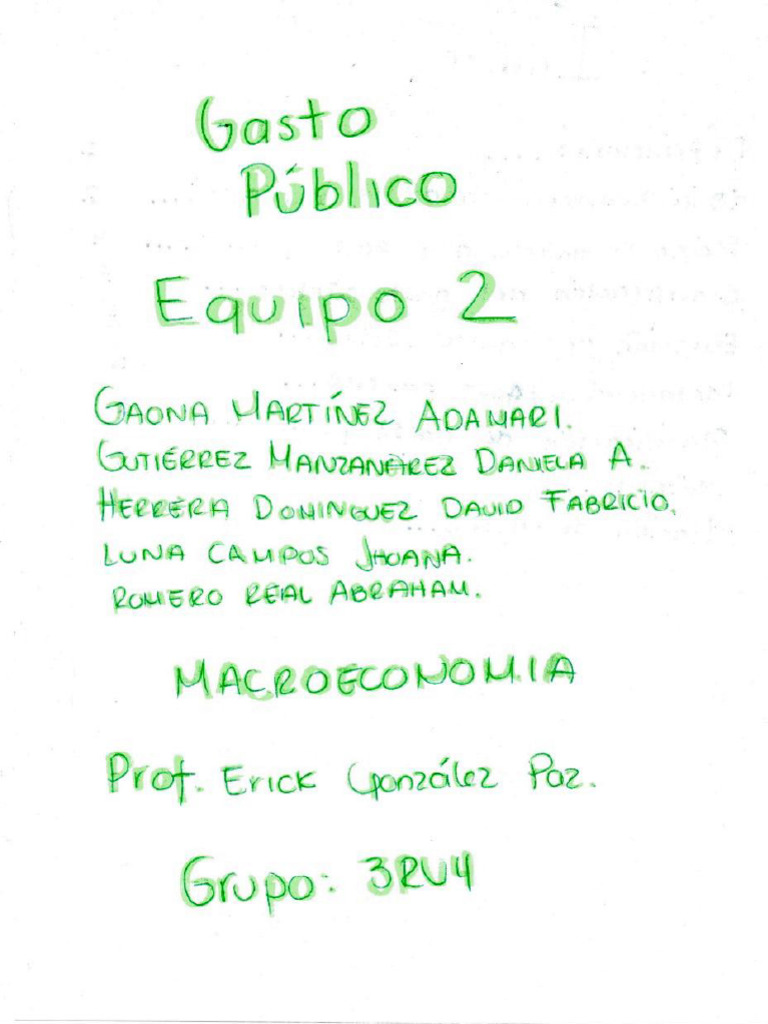 Gasto
Público
Equipo 2
GAONA MARTÍNEZ ADAMARI.
GUTIÉRREZ MANZANÁREZ DANIELA A.
HERRERA DOMINGUEZ DAVID FABRICIO.
LUNA CAMPOS JHOANA.
ROMERO REAL ABRAHAM.
MACROECONOMIA
Prof. Erick González Paz.
Grupo: 3RV4